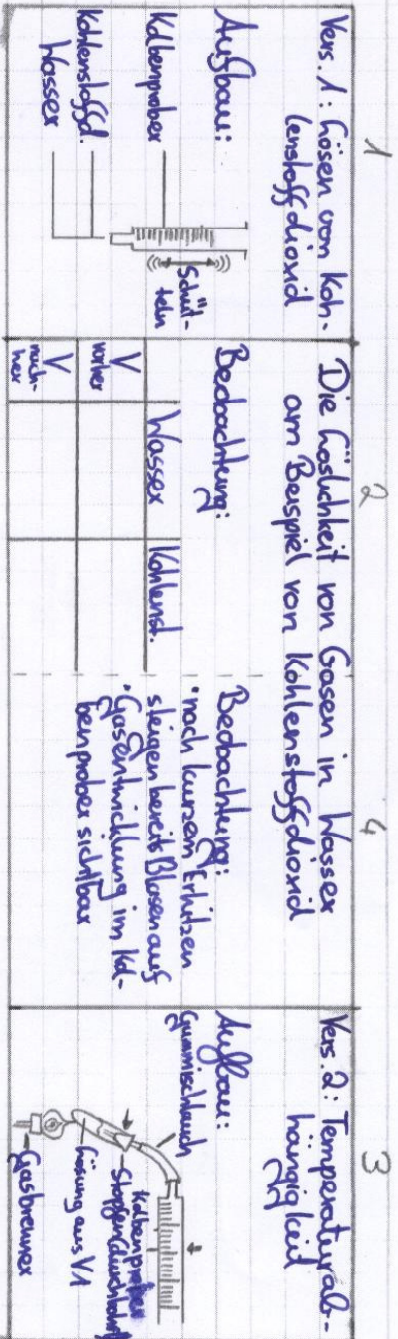 1
Vers. 1: Lösen von Koh-
lenstoffdioxid
Aufbau:
Kolbenprober
Kohlenstoffd.
Wasser
Schüt-
teln
2
4
Die Löslichkeit von Gasen in Wasser
am Beispiel von Kohlenstoffdioxid
Beobachtung:
Wasser
Kohlenst.
V
vorher
V
nach-
her
Beobachtung:
• nach kurzem Erhitzen
steigen bereits Blasen auf
• Gasentwicklung im Kol-
benprober sichtbar
3
Vers. 2: Temperaturab-
hängigkeit
Aufbau:
Gummischlauch
Kolbenprober
Stopfen (durchbohrt)
Lösung aus V1
Gasbrenner